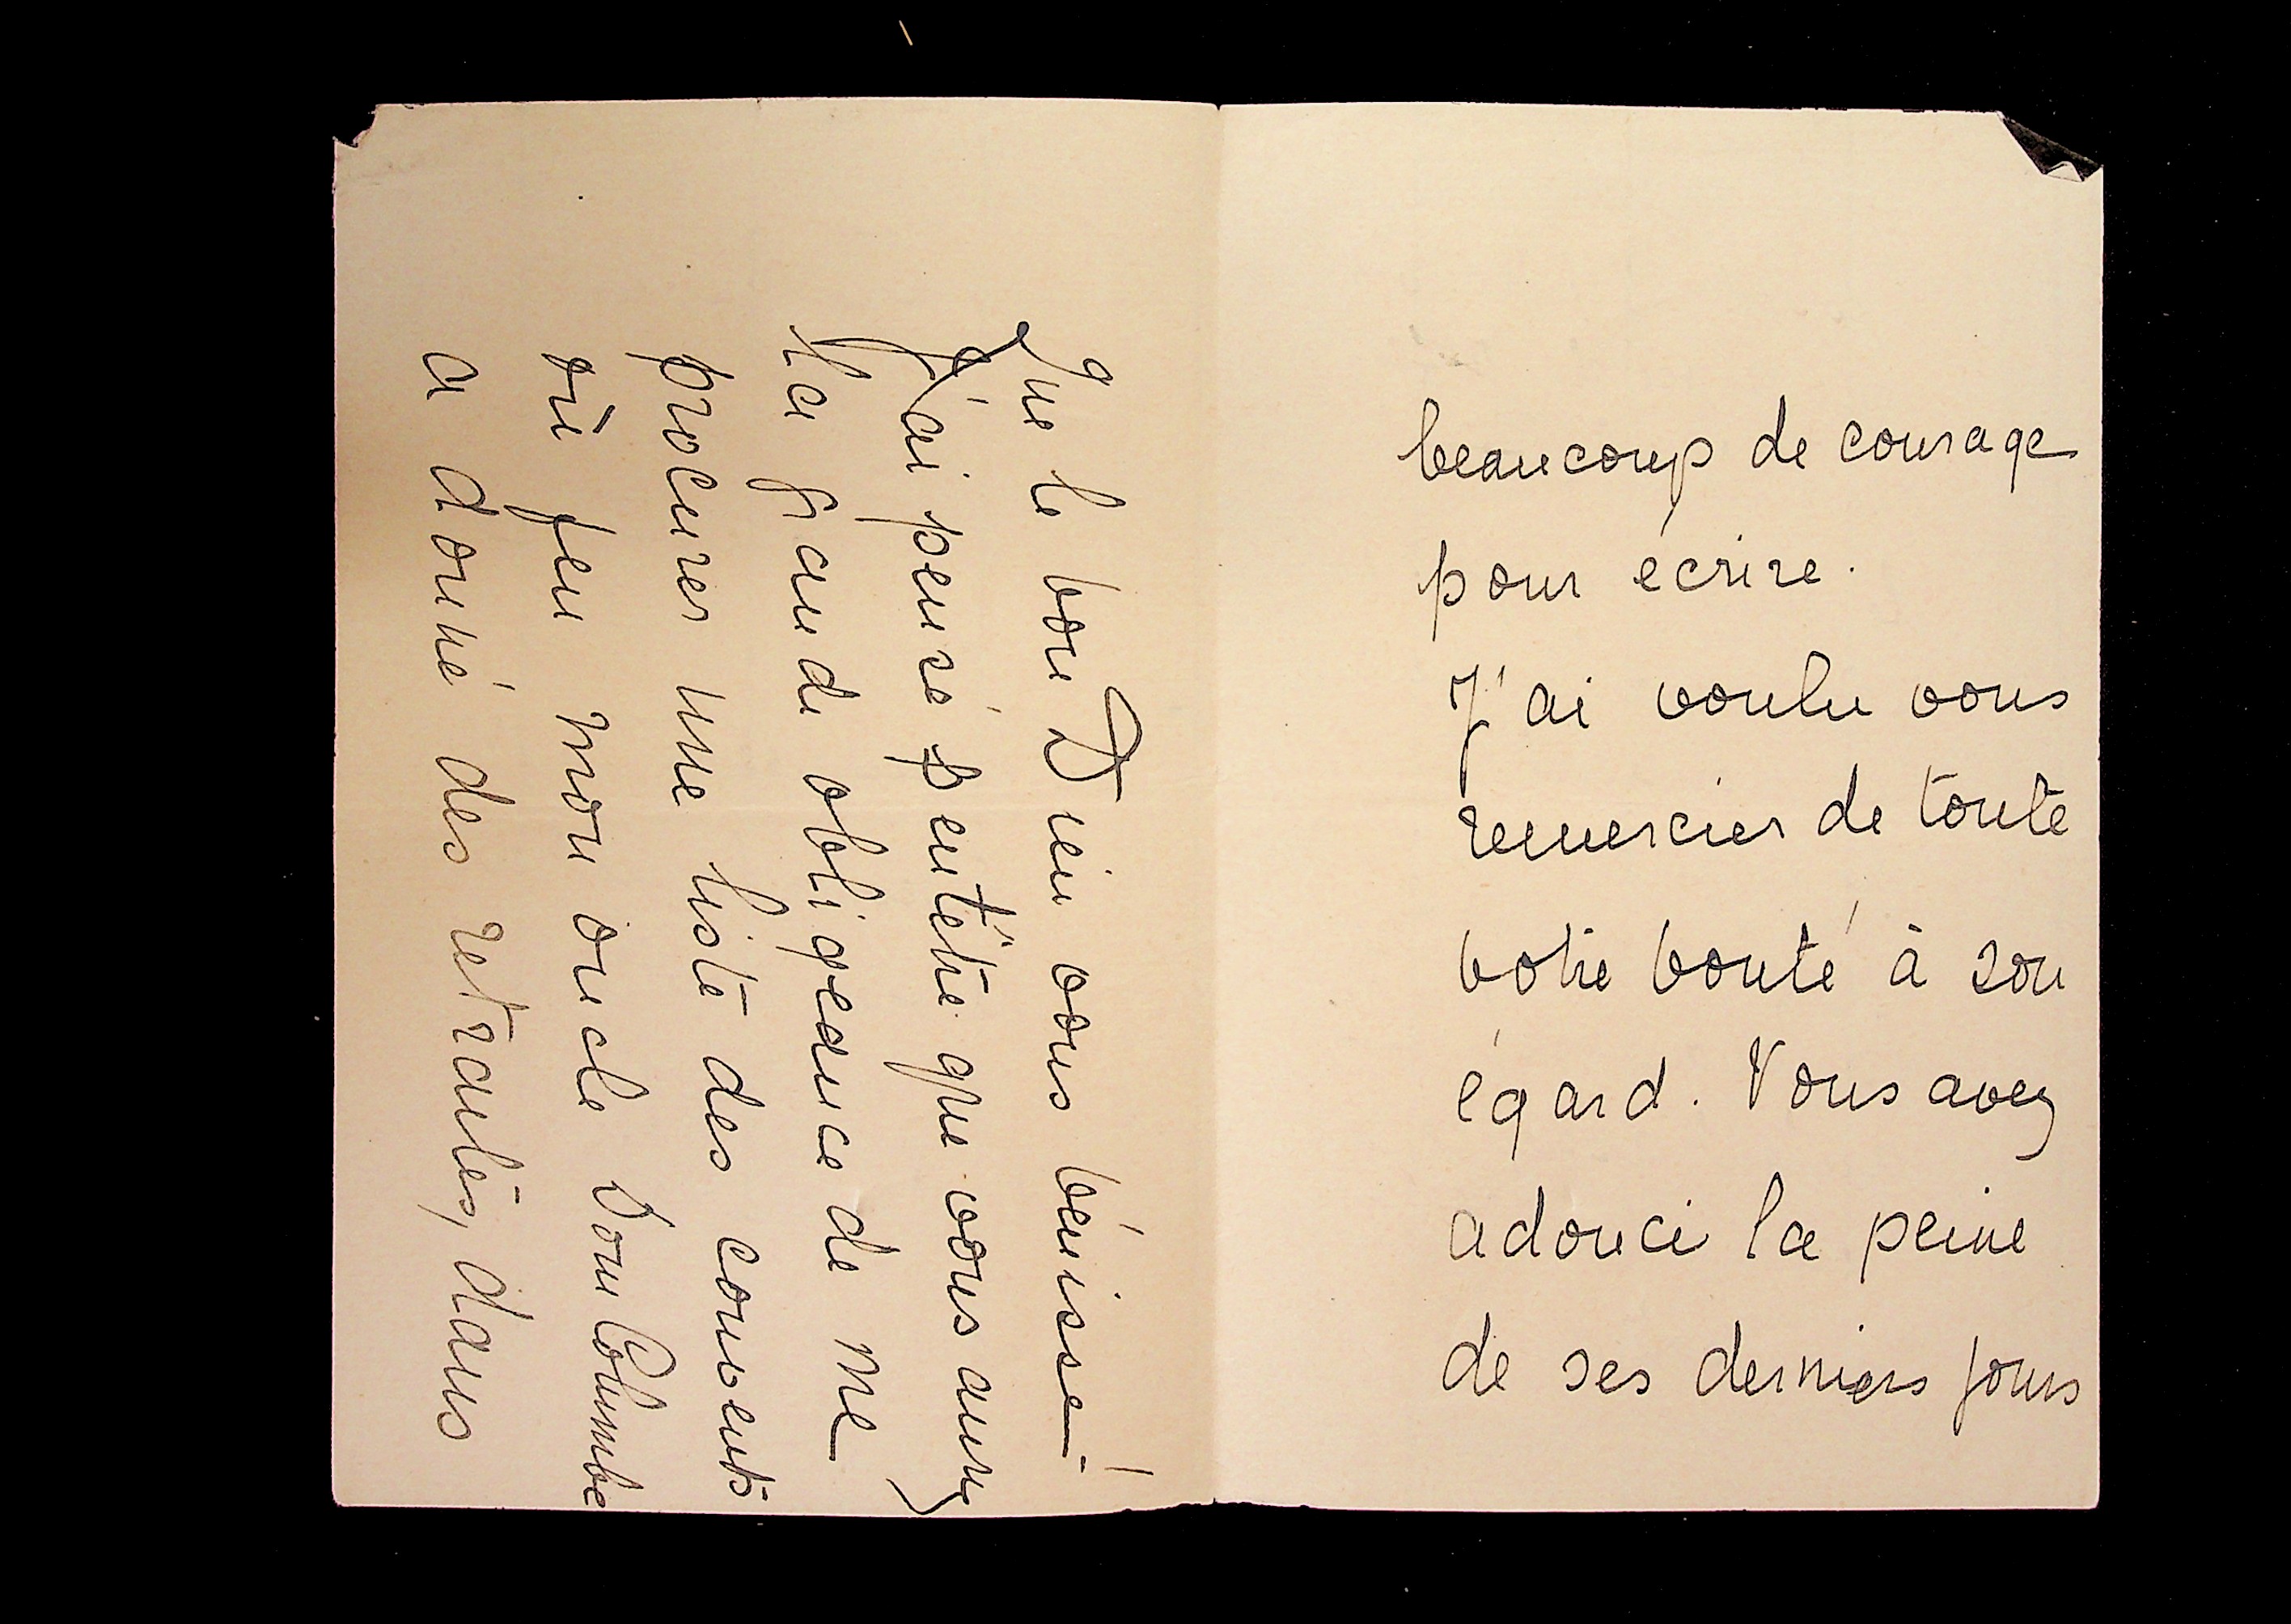 beaucoup de courage
pour écrire.
J'ai voulu vous
remercier de toute
votre bonté à son
égard. Vous avez
adouci la peine
de ses derniers jours
Que le bon Dieu vous bénisse !
J'ai pensé peutêtre que vous aurez
la grande obligeance de me
procurer une liste des couvents
où feu mon oncle Dom Columba
a donné des retraites, dans